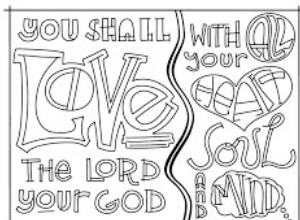 YOU SHALL
LOVE
THE LORD
your GOD
WITH ALL
your
HEART
SOUL
AND MIND.